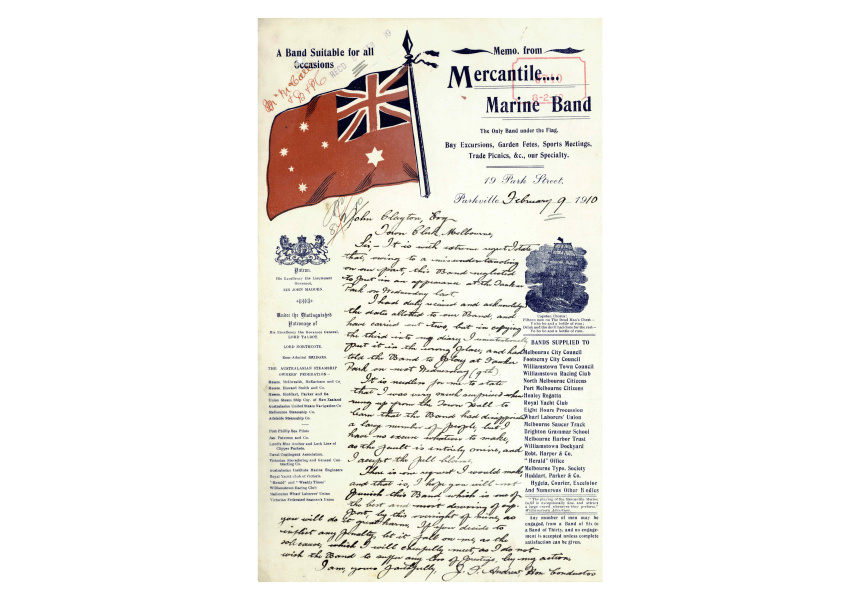 A Band Suitable for all
Occasions
Memo. from
Mercantile....
Marine Band
The Only Band under the Flag.
Bay Excursions, Garden Fetes, Sports Meetings,
Trade Picnics, &c., our Specialty.
19 Park Street,
Parkville, February 9 1910
John Clayton, Esq
Town Clerk, Melbourne,
Sir,- It is with extreme regret I state
that, owing to a misunderstanding
on our part, this Band neglected
to put in an appearance at the
Park on Wednesday last.
I had duly received and acknowledged
the dates allotted to our Band, and
have carried out two, but in copying
the third into my diary, I unintentionally
put it in the wrong place, and had
told the Band to play at
Park on next Wednesday (9th)
It is needless for me to state
that I was very much surprised when
rung up from the Town Hall to
learn that the Band had disappointed
a large number of people, but I
have no excuse whatever to make,
as the fault is entirely mine, and
I accept the full blame.
There is one request I would make,
and that is, I hope you will not
punish this Band which is one of
the best and most deserving of
by this oversight of mine, as
you will do it great harm. If you decide to
inflict any penalty, let it fall on me, as the
sole cause, which I will cheerfully meet, as I do not
wish the Band to suffer any loss of prestige, by my action
I am, yours faithfully, J. Andrew Hon Conductor
Patron.
His Excellency the Lieutenant
Governor,
SIR JOHN MADDEN.
Under the Distinguished
Patronage of
His Excellency the Governor General,
LORD TALBOT.
LORD NORTHCOTE.
Rear-Admiral BRIDGES.
THE AUSTRALASIAN STEAMSHIP
OWNERS' FEDERATION-
Messrs. McIlwraith, McEacharn and Co.
Messrs. Howard Smith and Co.
Messrs. Huddart, Parker and Co.
Union Steam Ship Coy. of New Zealand
Australasian United Steam Navigation Co.
Melbourne Steamship Co.
Adelaide Steamship Co.
Port Phillip Sea Pilots.
Australasian Institute Marine Engineers
Royal Yacht Club of Victoria.
"Herald" and "Weekly Times"
Williamstown Racing Club
Melbourne Wharf Laborers' Union
Victorian Federated Seamen's Union
Fifteen men on The Dead Man's Chest-
Yo ho ho and a bottle of rum;
Drink and the devil had done for the rest-
Yo ho ho and a bottle of rum.
BANDS SUPPLIED TO
Melbourne City Council
Footscray City Council
Williamstown Town Council
Williamstown Racing Club
North Melbourne Citizens
Port Melbourne Citizens
Henley Regatta
Royal Yacht Club
Eight Hours Procession
Wharf Laborers' Union
Melbourne Saucer Track
Brighton Grammar School
Melbourne Harbor Trust
Williamstown Dockyard
Robt. Harper & Co.
"Herald" Office
Melbourne Typo. Society
Huddart, Parker & Co.
Hygeia, Courier, Excelsior
And Numerous Other Bodies
Any number of men may be
engaged, from a Band of Six to
a Band of Thirty, and no engage-
ment is accepted unless complete
satisfaction can be given.